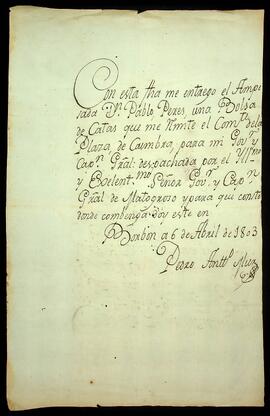 Con esta fha me entrego el Ampe
sada Dn. Pablo Peres, una Bolsa
de Cartas que me rimite el Comte. dela
Plaza de Cuimbra, para mi Govr. y
Capn. Gral: despachada por el Illmo.
y Exelentmo. Señor Govr. y Capn
Gral de Matogroso y para que conste
donde combenga doy este en
Borbón a 6 de Abril de 1803
Pedro Antto. Mier